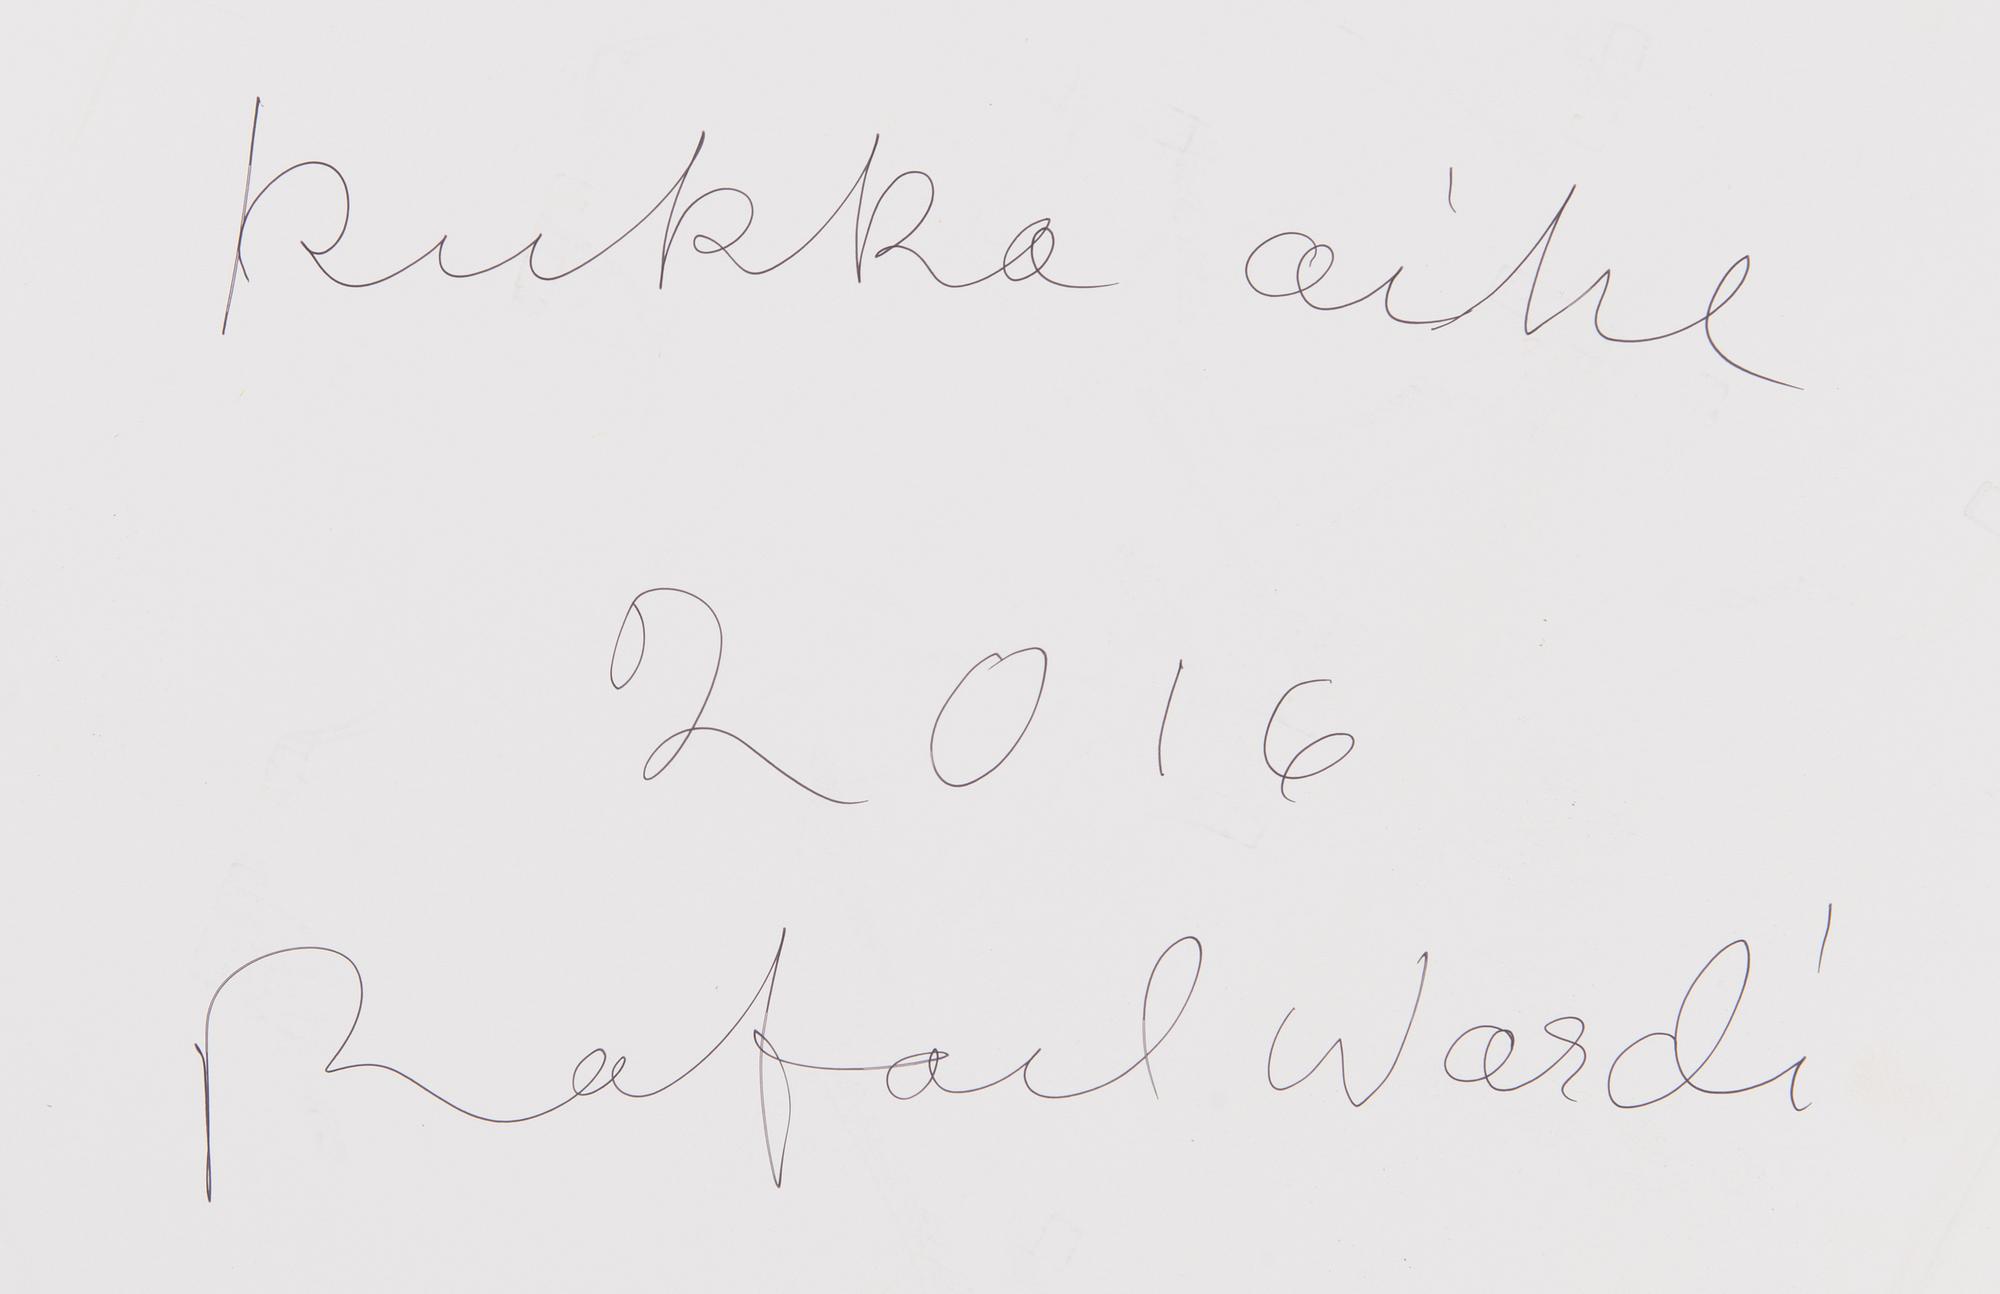 kukka aihe
2016
Rafael Wardi